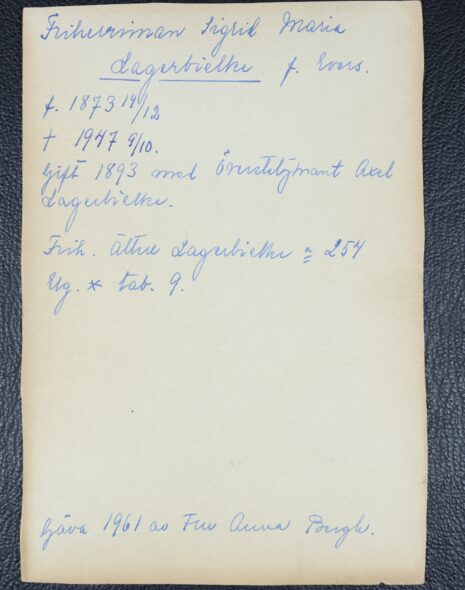 Friherrinnan Sigrid Maria
Lagerbielke f. Evers.
f. 1873 14/12
† 1947 9/10.
Gift 1893 med Överstelöjtnant Axel
Lagerbielke.
Frih. ätten Lagerbielke n 254
Elg. * tab. 9.
Gåva 1961 av Fru Anna Bergh.